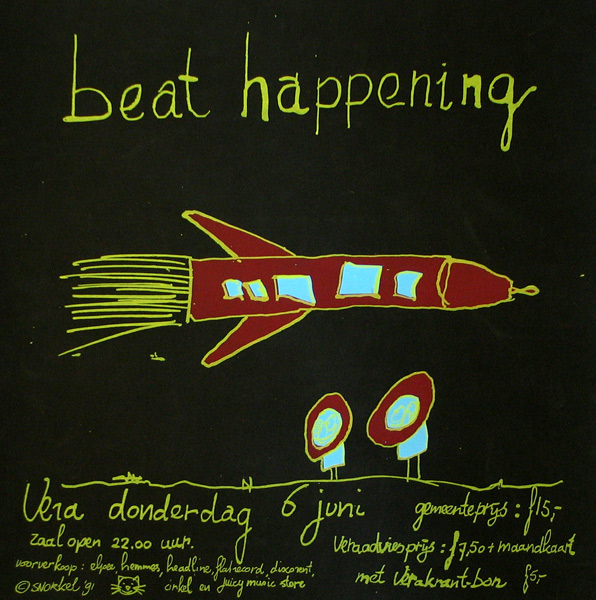 beat happening
Vera donderdag 6 juni
zaal open 22.00 uur.
voorverkoop: elpee, hemmes, headline, flatrecord, disconent,
cirkel en juicy music store
© snorkel '91
gemeenteprijs: f15,-
Veraadviesprijs: f7,50 + maandkaart
met verakrant-bon f5,-